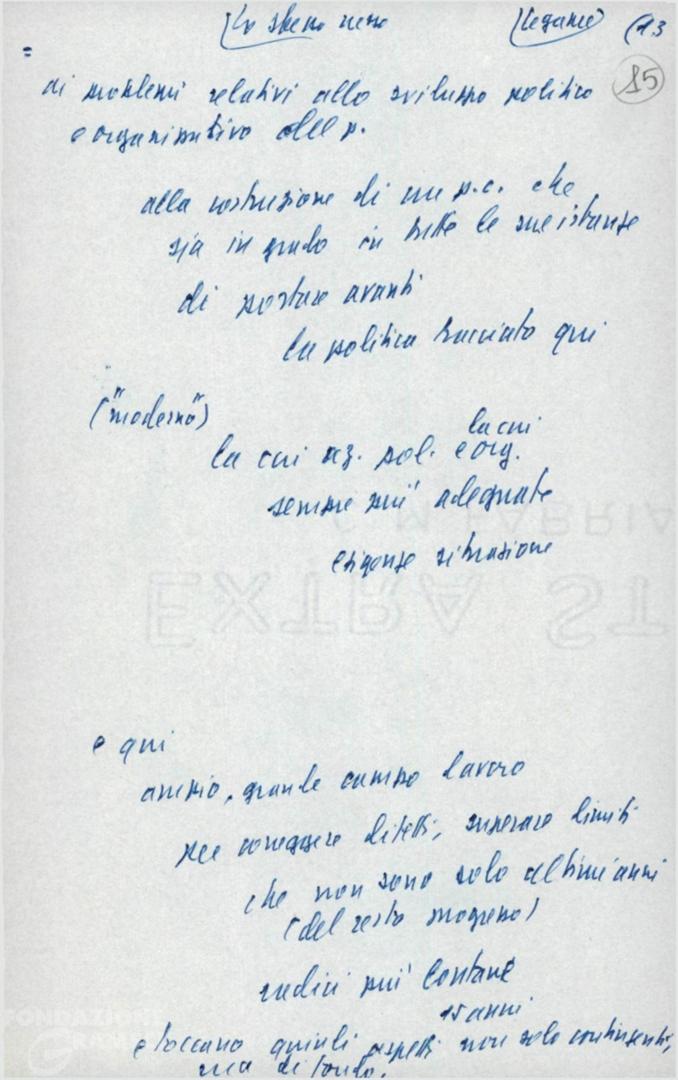 Lo stesso nesso legame (13
= 15
di problemi relativi allo sviluppo politico
e organizzativo del p.
alla costruzione di un p.c. che
sia in grado in tutte le sue istanze
di portare avanti
la politica tracciata qui
("moderno")
la cui
la cui az. pol. e org.
sempre più adeguate
esigenze situazione
C.M. FABRIA
EXTRA ST
e qui
ampio, grande campo lavoro
per correggere difetti, superare limiti
che non sono solo ultimi anni
(del resto progresso)
radici più lontane
15 anni
e toccano quindi aspetti non solo contingenti,
ma di fondo.
FONDAZIONE
GRAMSCI